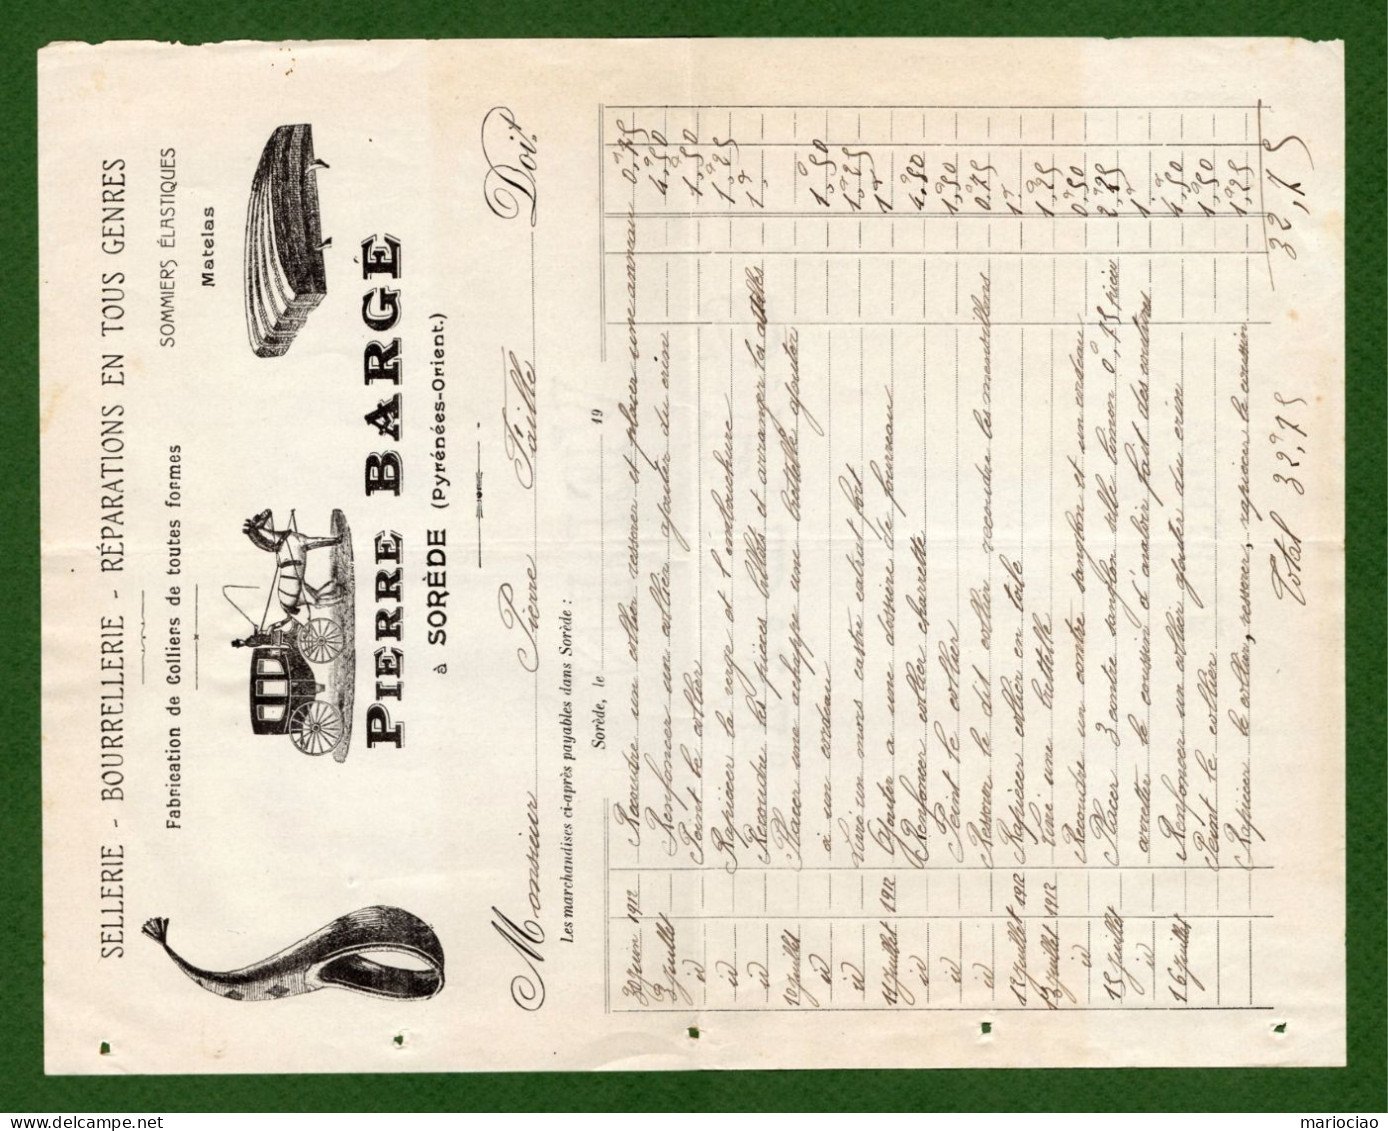 SELLERIE - BOURRELLERIE - RÉPARATIONS EN TOUS GENRES
Fabrication de Colliers de toutes formes
SOMMIERS ÉLASTIQUES
Matelas
PIERRE BARGÉ
à SORÈDE (Pyrénées-Orient.)
Monsieur Pierre Faille Doit:
Les marchandises ci-après payables dans Sorède :
Sorède, le 19
30 juin 1912 Recoudre un collier, resserer et placer une anneau 0,75
2 juillet Renfoncer un collier ajouter du crin 4,50
id Peint le collier 1,50
id Rapiécer la verge et l'enfourchure 1,25
id Recoudre les pièces billots et arranger les attelles 1
10 juillet Placer une échappe une batelle ajouter
id à un cordeau 1,50
id Livré un mors castré extrat fort 1,25
11 juillet 1912 Ajouter a une dossière de fourreau 1
id Renfoncer collier charrette 4,50
id Peint le collier 1,50
id Resserer le dit collier recoudre les mamellons 0,75
12 juillet 1912 Rapiécer collier en toile 1
13 juillet 1912 Livré une batelle 1,25
id Recoudre un contre sanglon et un cordeau 0,50
15 juillet Placer 3 contre sanglon selle limon 0,75 pièce 2,25
id le coussin et d'avaloir fait des coutures 1
16 juillet Renfoncer un collier ajouter du crin 4,50
Peint le collier 1,50
Rapiécer le collier, resserer, rapiécer le coussin 1,25
Total 32,75 32,75
mariociao